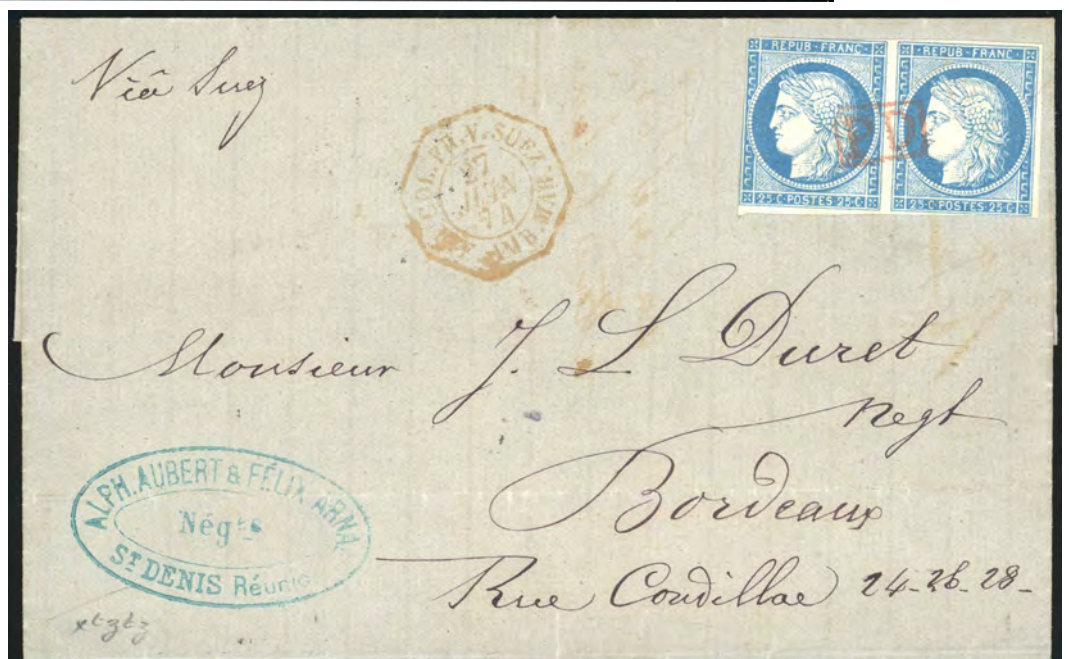 Viâ Suez
REPUB·FRANÇ·
REPUB·FRANÇ·
PD
25·C·POSTES·25·C·
25·C·POSTES·25·C·
COL. FR. V. SUEZ MAR
27
JUIN
74
Monsieur J. L Duret
Negt
Bordeaux
Rue Condillac 24-26-28-
ALPH. AUBERT & FÉLIX ARNAL
Négts
ST DENIS Réunion